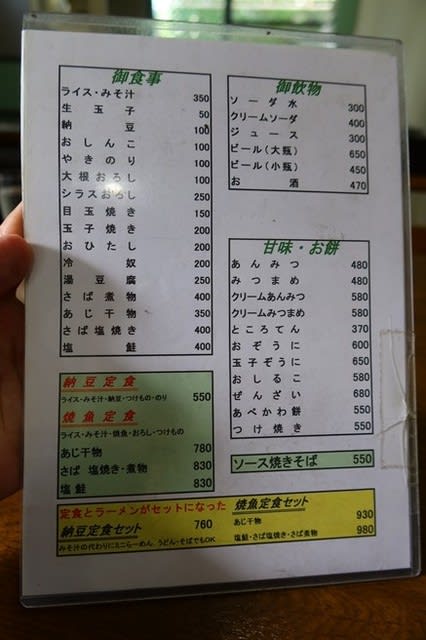 御食事
ライス・みそ汁 350
生玉子 50
納豆 100
おしんこ 100
やきのり 100
大根おろし 100
シラスおろし 250
目玉焼き 150
玉子焼き 200
おひたし 200
冷奴 200
湯豆腐 250
さば煮物 400
あじ干物 350
さば塩焼き 400
塩鮭 400
納豆定食
ライス・みそ汁・納豆・つけもの・のり 550
焼魚定食
ライス・みそ汁・焼魚・おろし・つけもの
あじ干物 780
さば 塩焼き・煮物 830
塩鮭 830
御飲物
ソーダ水 300
クリームソーダ 400
ジュース 300
ビール(大瓶) 650
ビール(小瓶) 450
お酒 470
甘味・お餅
あんみつ 480
みつまめ 480
クリームあんみつ 580
クリームみつまめ 580
ところてん 370
おぞうに 600
玉子ぞうに 650
おしるこ 580
ぜんざい 680
あべかわ餅 550
つけ焼き 550
ソース焼きそば 550
定食とラーメンがセットになった
納豆定食セット 760
みそ汁の代わりにミニらーめん うどん・そばでもOK
焼魚定食セット
あじ干物 930
塩鮭・さば塩焼き・さば煮物 980